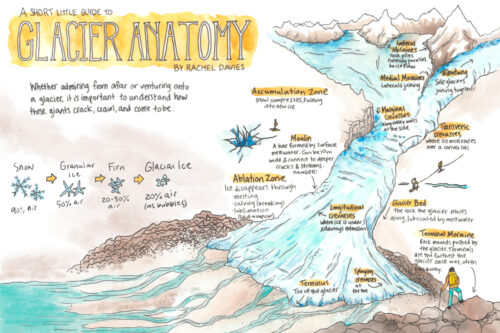 A SHORT LITTLE GUIDE TO
GLACIER ANATOMY
BY RACHEL DAVIES
Whether admiring from afar or venturing onto
a glacier, it is important to understand how
these giants crack, crawl, and come to be.
Snow
90% air
Granular
Ice
50% air
Firn
20-30%
air
Glacial Ice
20% air
(as bubbles)
Accumulation Zone
Snow compresses, turning
into new ice
Moulin
A hole formed by surface
meltwater. Can be 10m
wide & connect to deeper
cracks & streams.
DANGER!
Ablation Zone
Ice disappears through
- melting
- calving (breaking)
- sublimation
Lateral
Moraines
rock piles
running parallel
to ice flow
Medial Moraines
Laterals joining
Tributary
Side glaciers
joining together
Marginal
Crevasses
at the side
Transverse
crevasses
where ice accelerates
over a convex hill
Longitudinal
Crevasses
where ice is under
sideways extension
Glacier Bed
The rock the glacier moves
along, lubricated by meltwater
Terminal Moraine
Rock mounds pushed by
the glacier. Terminals
are the furthest the
glacier once was, often
far away.
Terminus
Toe of the glacier
Splaying
crevasses
at the
toe